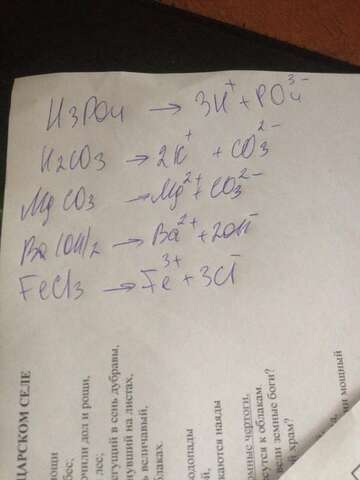 H3PO4 → 3H⁺ + PO4³⁻
H2CO3 → 2H⁺ + CO3²⁻
MgCO3 → Mg²⁺ + CO3²⁻
Ba(OH)2 → Ba²⁺ + 2OH⁻
FeCl3 → Fe³⁺ + 3Cl⁻
ЦАРСКОМ СЕЛЕ
нощи
бес;
очили дол и рощи,
лес;
бегущий в сень дубравы,
нувший на листах,
ь величавый,
блаках.
водопады
ой,
каются наяды
омные чертоги,
сутся к облакам.
вели земные боги?
й храм?
мощный